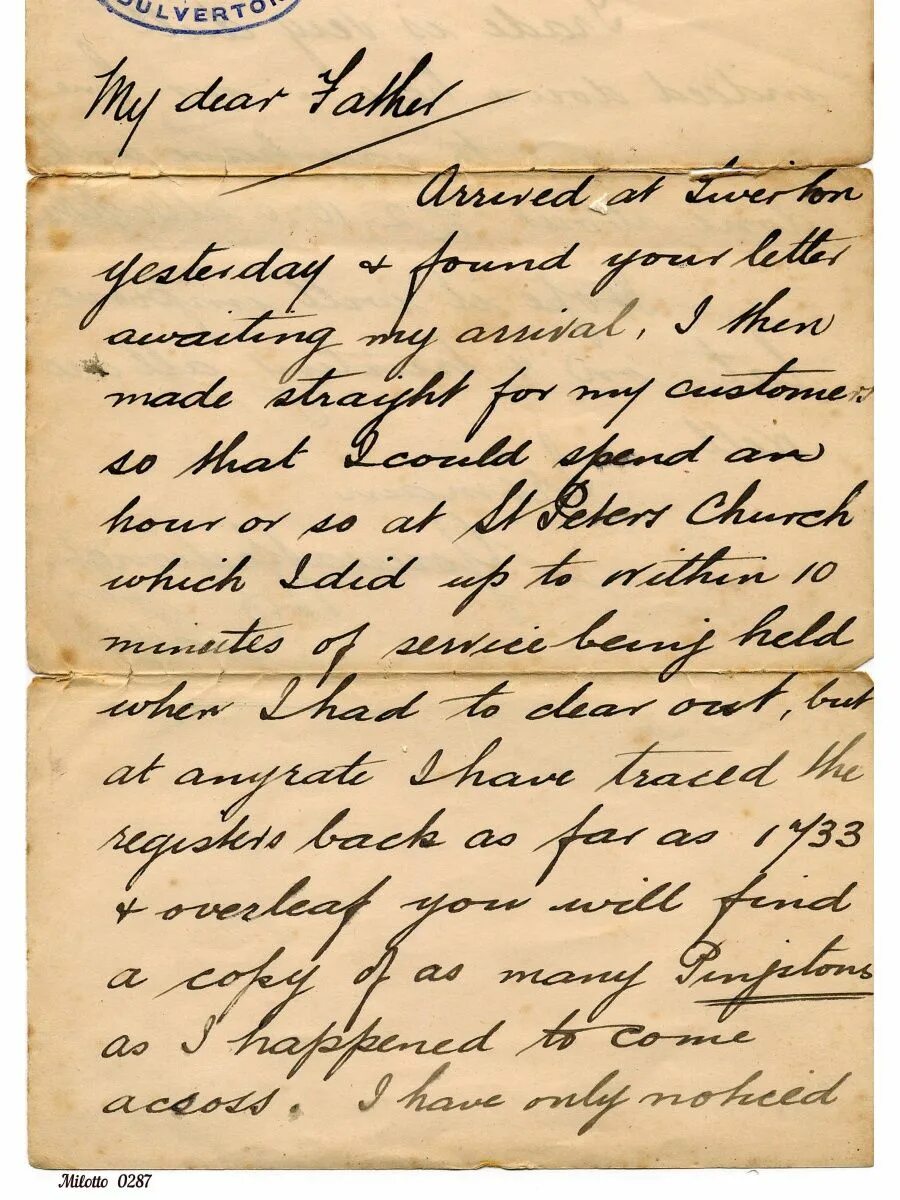 DULVERTON
My dear Father
Arrived at Tiverton
yesterday & found your letter
awaiting my arrival, I then
made straight for my customers
so that I could spend an
hour or so at St Peters Church
which I did up to within 10
minutes of service being held
when I had to clear out, but
at anyrate I have traced the
registers back as far as 1733
& overleaf you will find
a copy of as many Pinjstons
as I happened to come
acsoss. I have only noticed
Milotto 0287